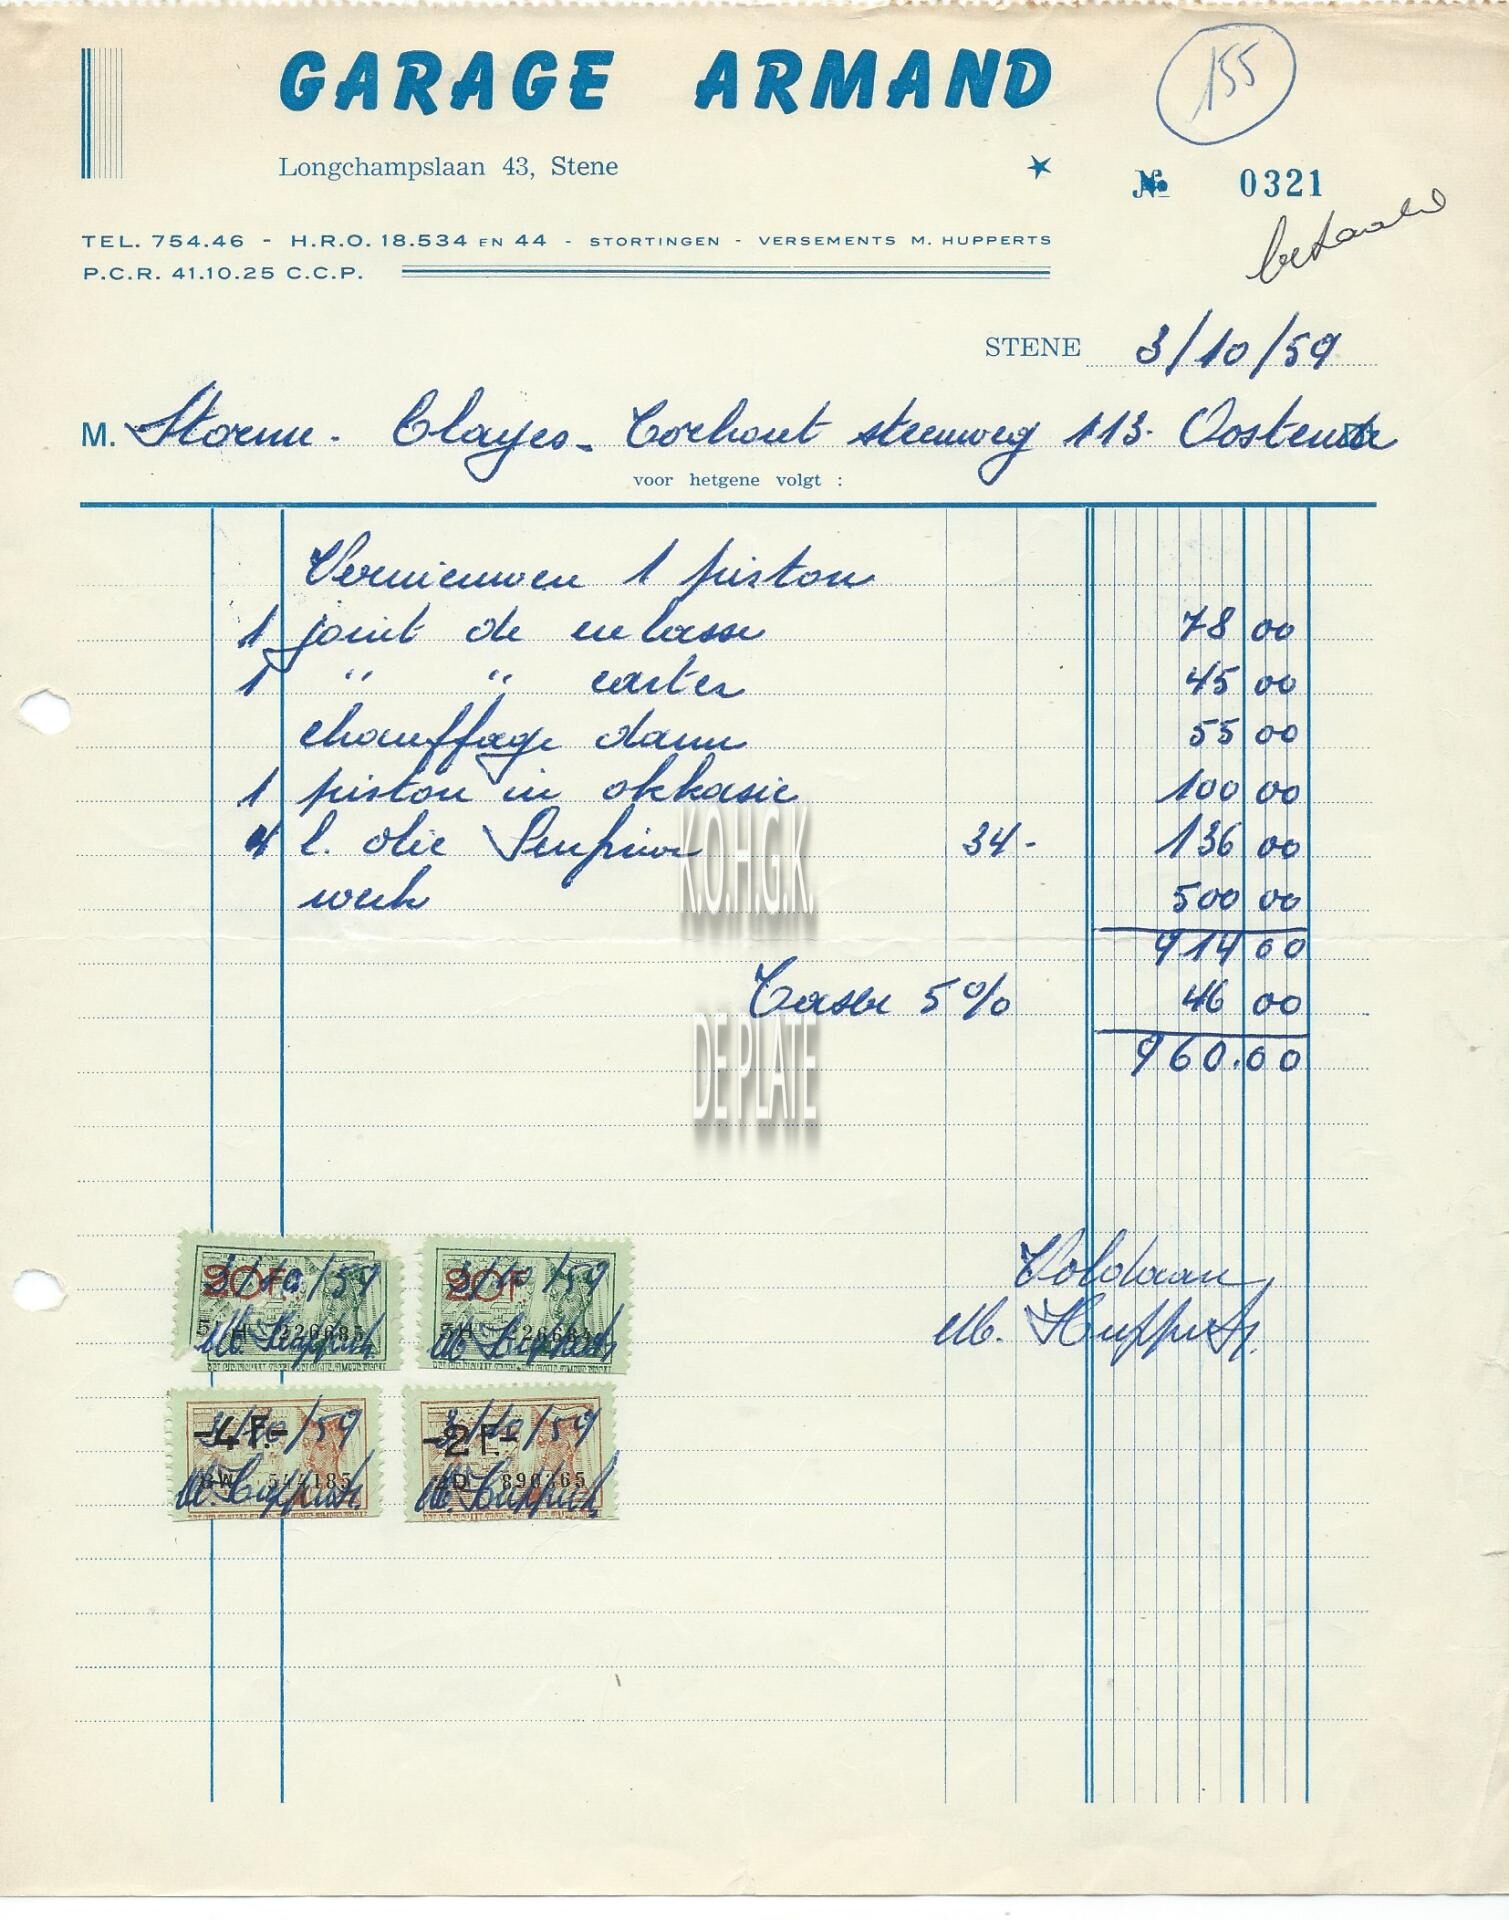 GARAGE ARMAND
155
Longchampslaan 43, Stene
№ 0321
betaald
TEL. 754.46 - H.R.O. 18.534 EN 44 - STORTINGEN - VERSEMENTS M. HUPPERTS
P.C.R. 41.10.25 C.C.P.
STENE 3/10/59
M. Storme - Clayes - Torhout steenweg 113. Oostende
voor hetgene volgt :
Vernieuwen 1 piston
1 joint de culasse 78 00
1 " " carter 45 00
chauffage dann 55 00
1 piston in okkasie 100 00
4 l. olie 34- 136 00
werk 500 00
914 00
Taxe 5% 46 00
960.00
K.O.H.G.K.
DE PLATE
Voldaan
M. Hupperts
20F. 3/10/59
M. Hupperts
20F. 3/10/59
M. Hupperts
-4 F.- 3/10/59
M. Hupperts
-2 F.- 3/10/59
M. Hupperts